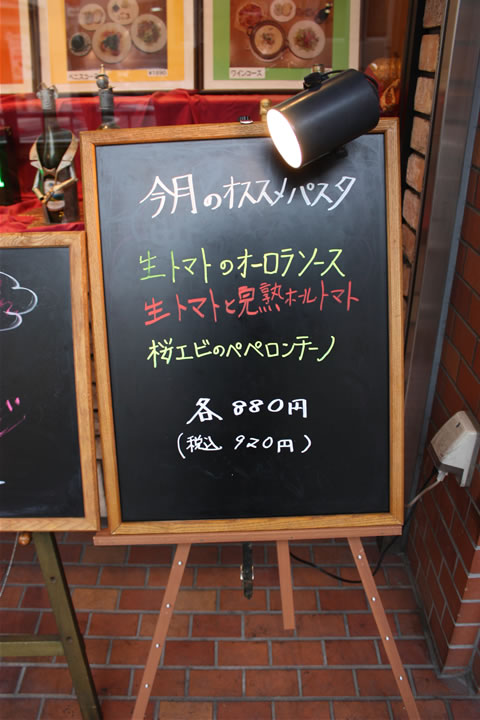 ペニスコース ¥1890
ワインコース
今月のオススメパスタ
生トマトのオーロラソース
生トマトと完熟ホールトマト
桜エビのペペロンチーノ
各 880円
(税込 920円)